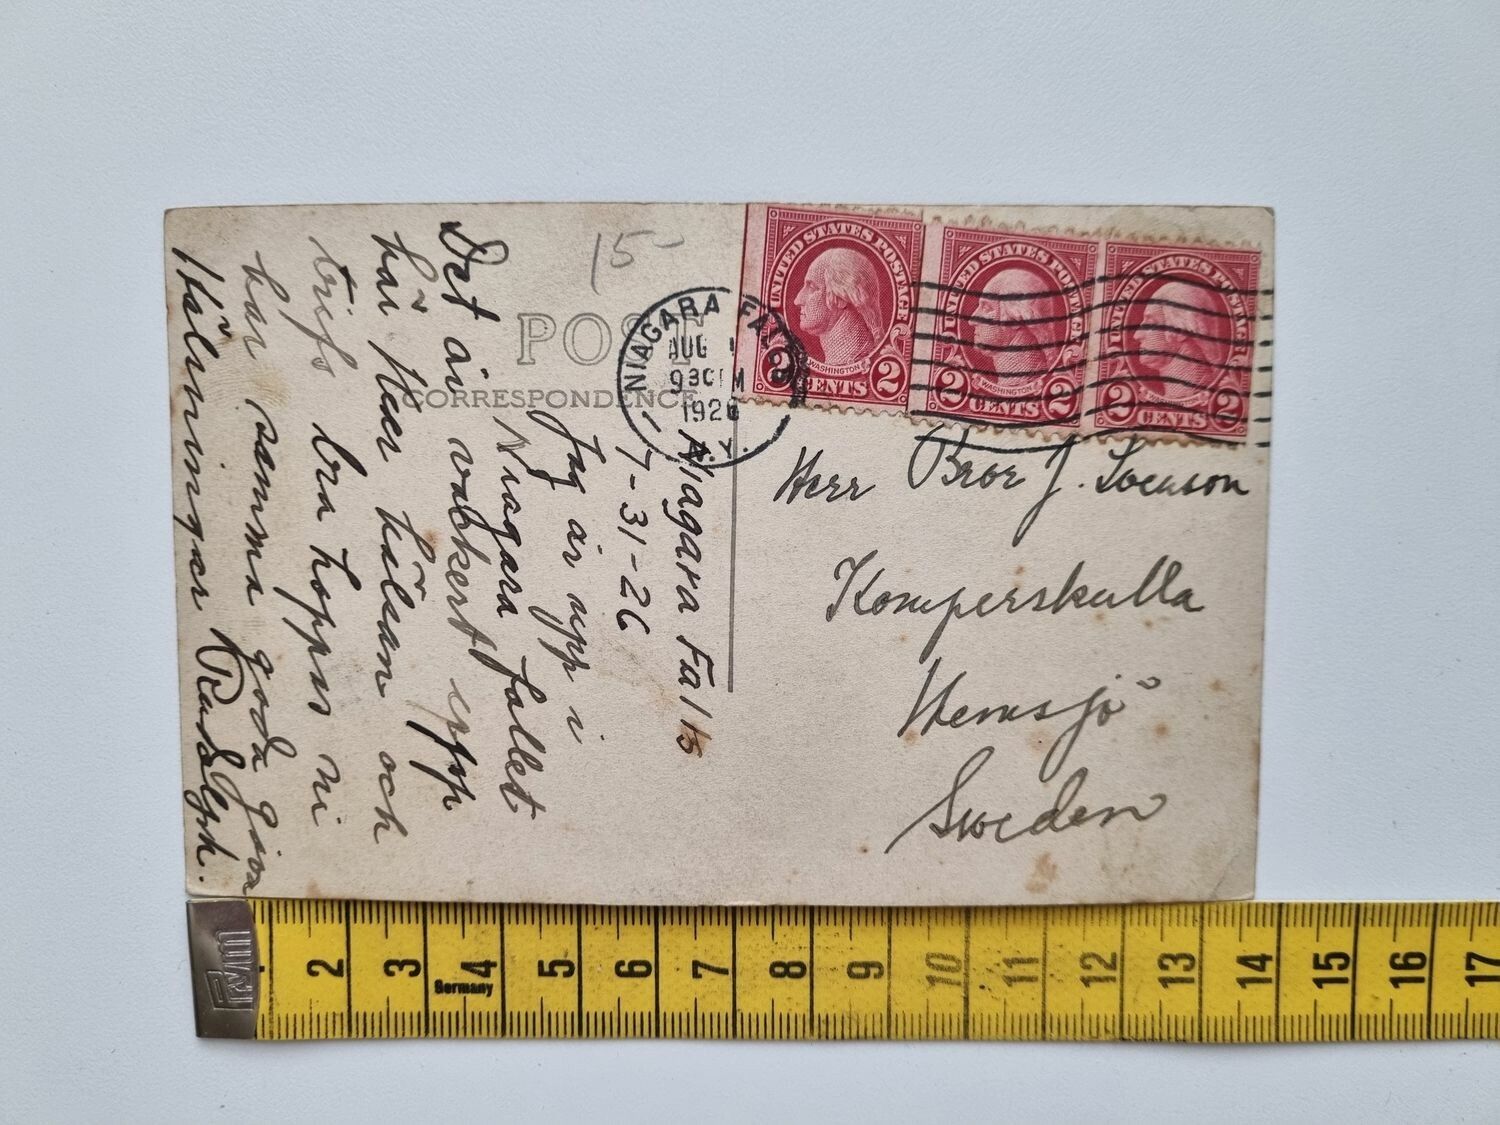 15-
POST
CORRESPONDENCE
NIAGARA FALLS
AUG 1
930 PM
1926
N.Y.
UNITED STATES POSTAGE
WASHINGTON
2 CENTS 2
UNITED STATES POSTAGE
WASHINGTON
2 CENTS 2
UNITED STATES POSTAGE
WASHINGTON
2 CENTS 2
Niagara Falls
7-31-26
Jag är upp i
Niagara fallet
Det är vackert upp
här Heer hälsan och
trifs bra hoppas ni
har samma goda
Hälsningar Rudolph.
Herr Bror J. Svenson
Komperskulla
Hemsjö
Sweden
Germany
2 3 4 5 6 7 8 9 10 11 12 13 14 15 16 17